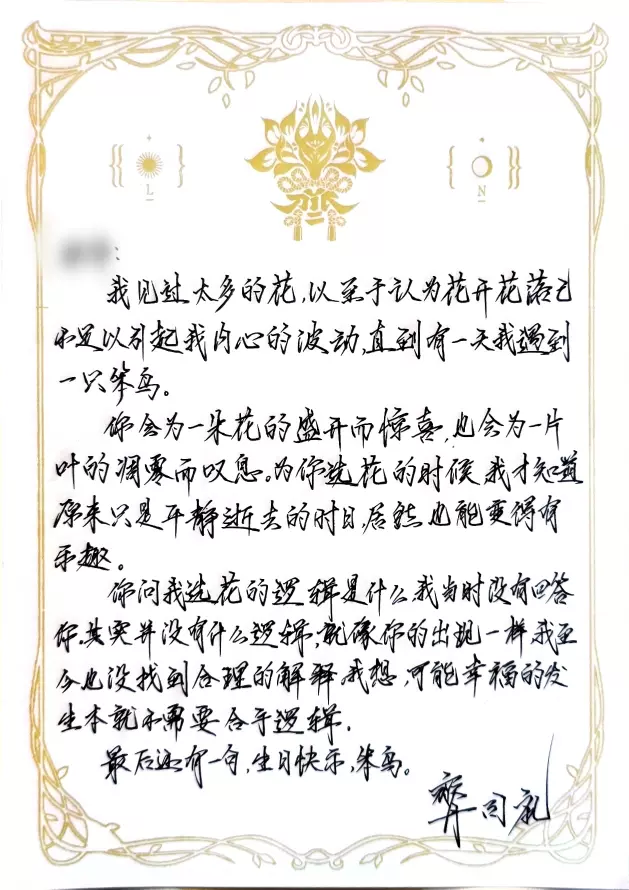 L
N
:
我见过太多的花,以至于认为花开花落已
不足以引起我内心的波动,直到有一天我遇到
一只笨鸟。
你会为一朵花的盛开而惊喜,也会为一片
叶的凋零而叹息。为你选花的时候,我才知道
原来只是平静逝去的时日,居然也能变得有
乐趣。
你问我选花的逻辑是什么,我当时没有回答
你。其实并没有什么逻辑,就像你的出现一样,我至
今也没找到合理的解释。我想,可能幸福的发
生本就不需要合乎逻辑。
最后还有一句,生日快乐,笨鸟。
齐司礼